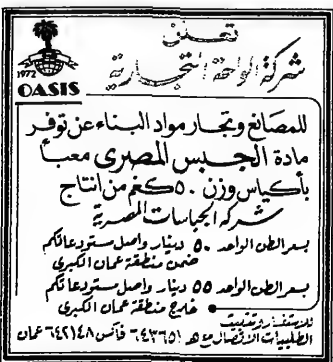 تعلن
شركة الواحة التجارية
1972
OASIS
للمصانع وتجار مواد البناء عن توفر
مادة الجبس المصري معبأ
بأكياس وزن ٥٠ كغم من انتاج
شركة الجباسات المصرية
بسعر الطن الواحد ٥٠ دينار واصل مستودعاتكم
ضمن منطقة عمان الكبرى
بسعر الطن الواحد ٥٥ دينار واصل مستودعاتكم
خارج منطقة عمان الكبرى
للاستفسار وتثبيت
الطلبيات الاتصال مع هـ ٦٤٣٦٥١ فاكس ٦٤٢١٤٨ عمان